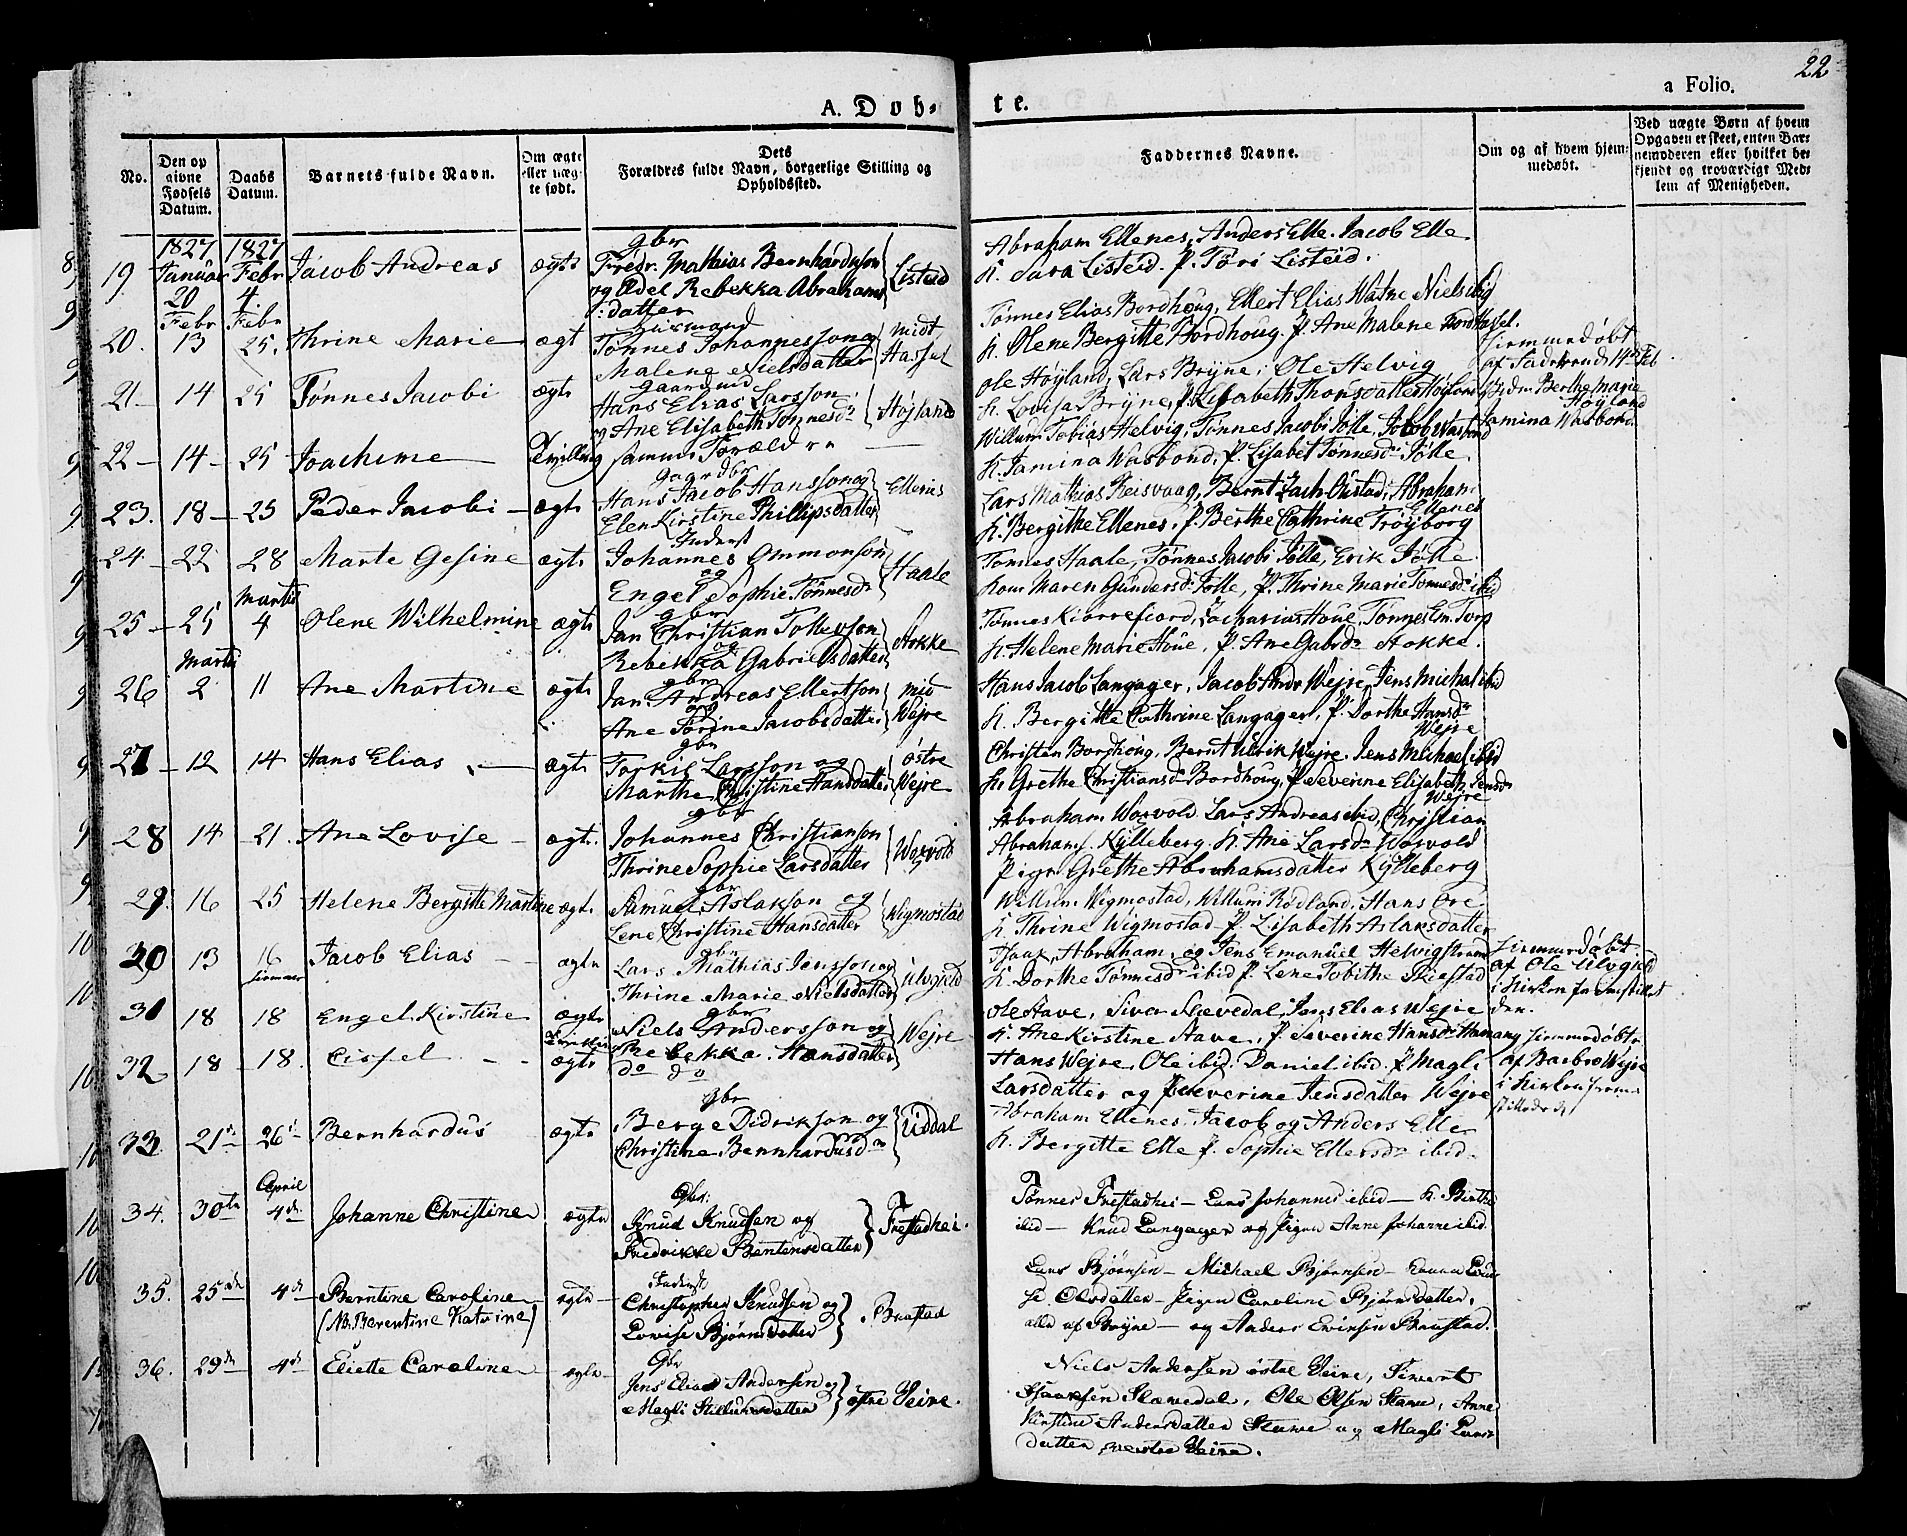 22
A. Døb-
te.
a Folio.
No.
Den op
givne
Fødsels
Datum.
Daabs
Datum.
Barnets fulde Navn.
Om ægte
eller uæg-
te født.
Dets
Forældres fulde Navn, borgerlige Stilling og
Opholdssted.
Faddernes Navne.
Om og af hvem hjem-
medøbt.
Ved uægte Børn af hvem
Opgaven er skeet, enten Bar-
nemoderen eller hvilket be-
kjendt og troværdigt Med-
lem af Menigheden.
1827 1827
19 Januar 20 Febr 4. Jacob Andreas ægte
gbr
Fredr. Mathias Bernhardson
og Adel Rebekka Abrahams
datter
Listeid
Abraham Ellenes, Anders Elle. Jacob Elle
K. Sara Listeid. P. Töri Listeid.
20. Febr 13 Febr 25. Thrine Marie ægt
Huusmand
Tønnes Johannesson og
Malene Nielsdatter
midt
Hassel
Tönnes Elias Bordhoug, Ellert Elias Watne Niels ibid
K. Olene Bergitte Bordhoug. P. Ane Malene Hassel.
21 - 14 25 Tønnes Jacobi ægte
gaardmd
Hans Elias Larsson
og Ane Elisabeth Tønnesdr
Højland
Ole Høyland, Lars Bryne, Ole Helvig
K. Lovisa Bryne, P. Elisabeth Thorsdatter Høyland
hjemmedøbt
Berthe Marie
Høyland
22 - 14 - 25 Joachime Tvilling
samme Forældre
Willum Tobias Helvig, Tønnes Jacobi Jölle, Jacob Wasbond
K. Jamina Wasbond, P. Lisabet Tønnesdr Jölle
Jamina Wasbond
23. 18 - 25 Peder Jacobi - ægte
gaardbr
Hans Jacob Hansson og
Elen Kirstine Phillipsdatter
Ellenes
Lars Mathias Reisvaag, Bernt Zach. Oustad, Abraham
Ellenes
K. Bergithe Ellenes, P. Berthe Cathrine Tröyborg
24 - 22 28 Marte Gesine ægte
Inderst
Johannes Ommonson
og
Engel Sophie Tønnesdr
Haale
Tønnes Haale, Tønnes Jacobi Jölle, Erik Jölle
Kone Maren Gundersdr Jölle, P. Thrine Marie Tønnesdr ibid
25 - 25 Martii 4 Olene Wilhelmine ægte
gbr
Jan Christian Tollevson
og
Rebekka Gabrielsdatter
Stokke
Tønnes Kiørrefiord, Zacharias Houe, Tønnes Em. Torp
K. Helene Marie Houe, P. Ane Gabrdr Stokke.
26 Martii 2 11 Ane Martine ægte
gbr
Jan Andreas Ellertson
og
Ane Törine Jacobsdatter
mid
Wejre
Hans Jacob Langager, Jacob Andr Wejre, Jens Michal ibid
K. Bergitte Cathrine Langager, P. Dorthe Hansdr
Wejre
27 - 12 14 Hans Elias ægte
gbr
Torkil Larsson og
Marthe Christine Hansdatter
østre
Wejre
Christen Bordhoug, Bernt Ulrik Wejre, Jens Michael ibid
K. Grethe Christiansdr Bordhoug, P. Severine Elisabeth Jensdr
Wejre
28 14 21. Ane Lovise - ægte.
gbr
Johannes Christianson
Thrine Sophie Larsdatter
Worvold
Abraham Worvold Lars Andreas ibid, Christian
Abrahams. Kylleberg, K. Ane Larsdr Worvold
Pige Grethe Abrahamsdatter Kylleberg
29. 16 25 Helene Bergitte Martine ægte
gbr
Samuel Aslakson og
Lene Christine Hansdatter
Wigmostad
Willum Wigmostad, Willum Rødland, Hans Øre
K. Thrine Wigmostad P. Lisabeth Aslaksdatter
30 13 16 Jacob Elias - - ægte
gbr
Lars Mathias Jensson og
Thrine Marie Nielsdatter
Ulvgield
Isaac, Abraham, og Jens Emanuel Helvigstrand
K. Dorthe Tønnesdr ibid P. Lene Tobithe Skiestad
hjemmedøbt
af Ole Ulvgield
i Kirken fremstillet
den.
31 18 18 Engel Kirstine ægte
gbr
Niels Andersson og
Rebekka Hansdatter
Wejre
Ole Stave, Siver Slævedal, Jens Elias Wejre
K. Ane Kirstine Stave, P. Severine Hansdr
32 18 18. Cissel - - ægte
do do
Hans Wejre, Ole ibid. Daniel ibid. P. Magli
Larsdatter og P. Severine Jensdatter Wejre
hjemmedøbt
af Barbro Wejre
i Kirken frem-
stillede
33. 21de 26de Bernhardus ægte
gbr
Berge Didrikson og
Christine Bernhardusdr
Uddal
Abraham Ellenes, Jacob og Anders Elle
K. Bergitte Elle P. Sophie Ellersdr ibid
34. 30te April 4de Johanne Christine ægte
Gbr:
Knud Knudsen og
Fredrikke Berntensdatter
Frestadhei.
Tønnes Frestadhei - Lars Johannes ibid - K. Berthe
ibid - Knud Langager og Pigen Anne Johanne ibid.
35. 25de 4de Berntine Caroline ægte
(NB. Berentine Katrine)
Inderst
Christopher Knudsen og
Lovise Bjørnsdatter
Brastad
Lars Bjørnsen - Michael Bjørnsen - Konen Loui-
se Olsdatter - Pigen Caroline Bjørnsdatter,
alle af Bryne - og Anders Brastad.
36. 29de 4de Eliette Caroline ægte
Gbr
Jens Elias Andersen og
Magli Sivertsdatter
østre Veire.
Niels Andersen østre Veire, Sivert
Isaacsen Slævedal, Ole Olsen Stave, Anne
Kirstine Andersdatter Stave og Magli Lars-
datter vestre Veire.